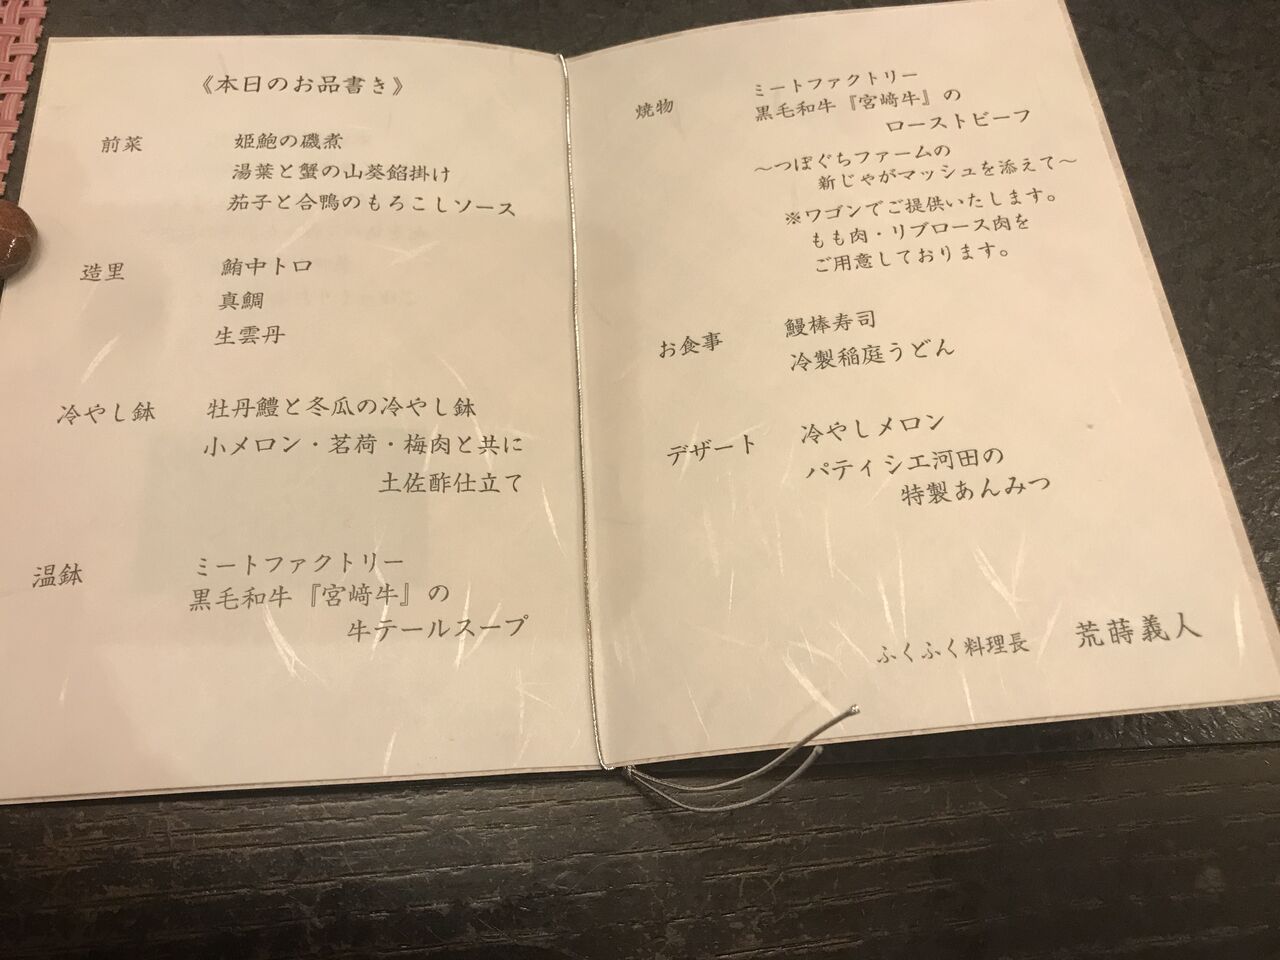 《本日のお品書き》
前菜 姫鮑の磯煮
湯葉と蟹の山葵餡掛け
茄子と合鴨のもろこしソース
造里 鮪中トロ
真鯛
生雲丹
冷やし鉢 牡丹鱧と冬瓜の冷やし鉢
小メロン・茗荷・梅肉と共に
土佐酢仕立て
温鉢 ミートファクトリー
黒毛和牛『宮﨑牛』の
牛テールスープ
焼物 ミートファクトリー
黒毛和牛『宮﨑牛』の
ローストビーフ
～つぼぐちファームの
新じゃがマッシュを添えて～
※ワゴンでご提供いたします。
もも肉・リブロース肉を
ご用意しております。
お食事 鰻棒寿司
冷製稲庭うどん
デザート 冷やしメロン
パティシエ河田の
特製あんみつ
ふくふく料理長 荒蒔義人